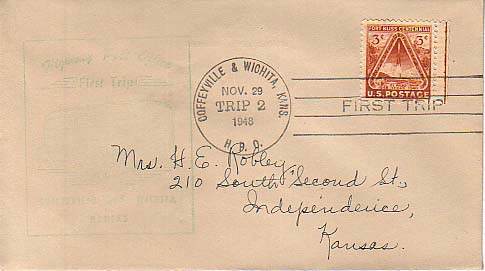 Highway Post Office
First Trip
COFFEYVILLE & WICHITA, KANS.
NOV. 29
TRIP 2
1948
H.P.O.
FORT BLISS CENTENNIAL
3¢ 3¢
U.S. POSTAGE
FIRST TRIP
Mrs. H. E. Robley
210 South Second St.,
Independence,
Kansas.